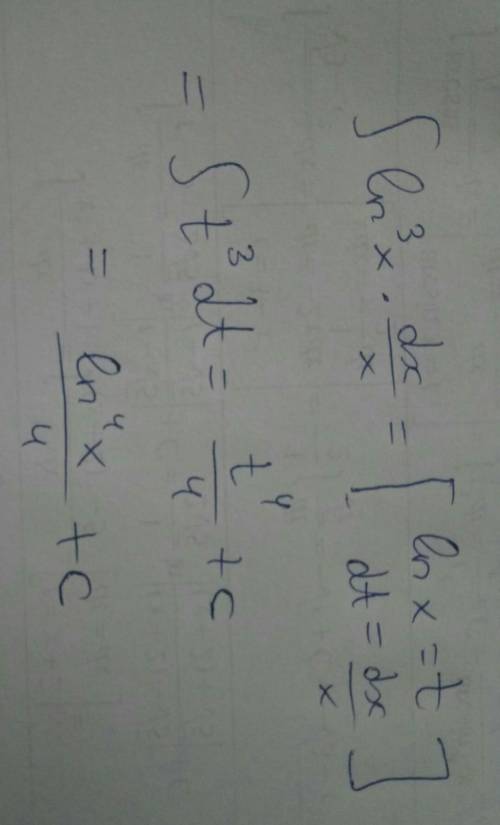 ∫ ln³x · dx/x = [ ln x = t
dt = dx/x ]
= ∫ t³ dt = t⁴/4 + c
= ln⁴x/4 + c